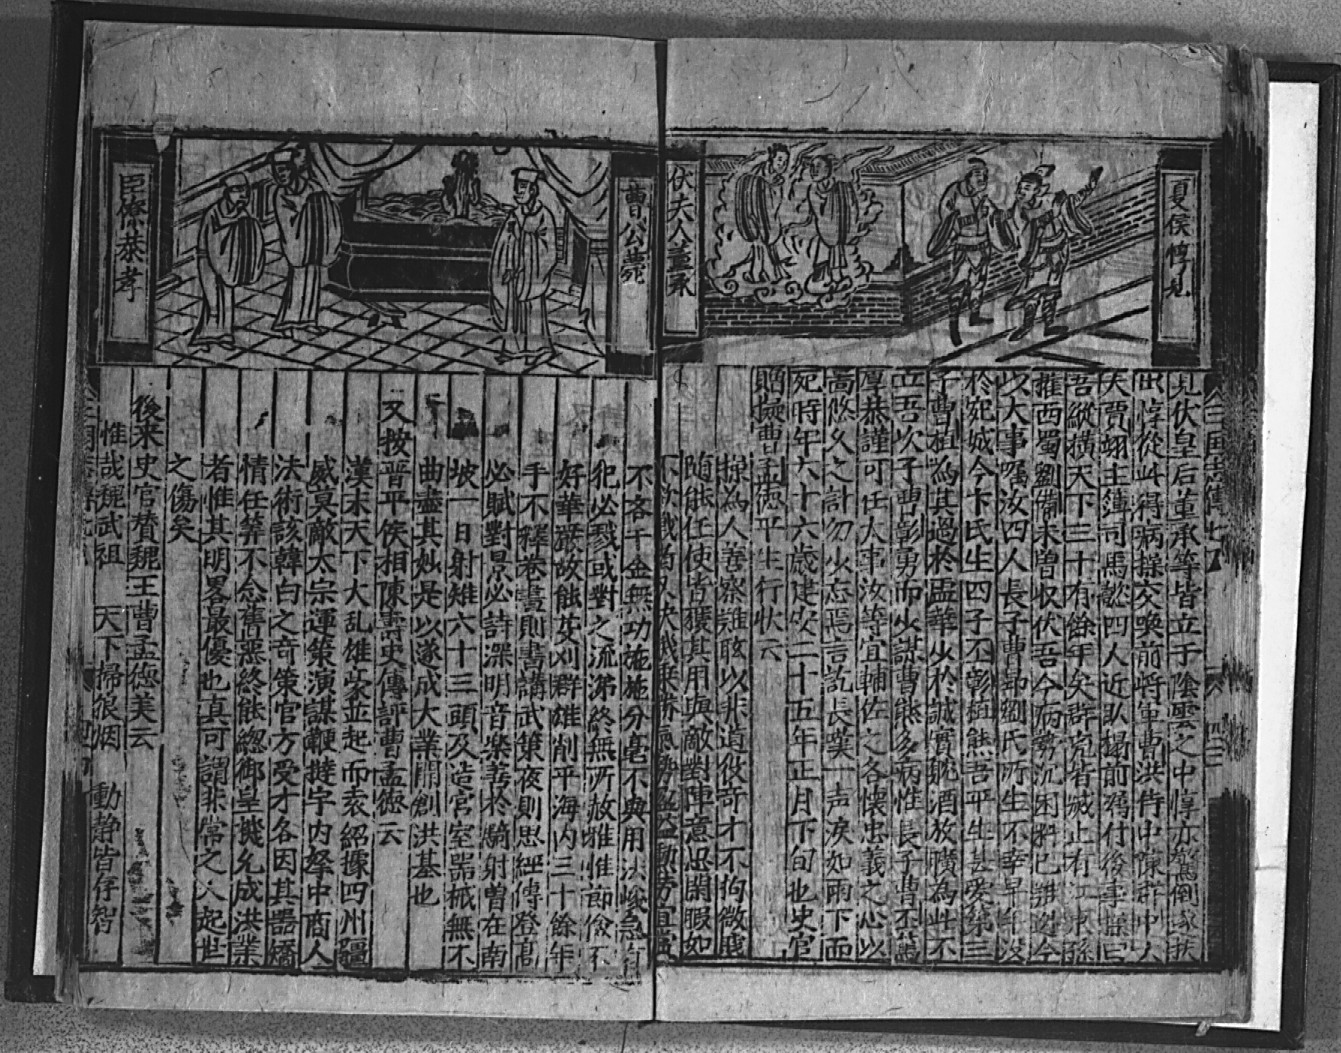 夏侯惇見
伏夫人董承
見伏皇后董承等皆立于陰雲之中惇亦驚倒遂扶
出惇從此得病操交喚前將軍曹洪侍中陳群中大
夫賈翊主簿司馬懿四人近臥榻前囑付後事操曰
吾縱橫天下三十有餘年矣群兇皆滅止有江東孫
權西蜀劉備未曽收伏吾今病勢沉困料已難逃今
以大事囑汝四人長子曹昂劉氏所生不幸早年沒
於宛城今卞氏生四子丕彰植熊吾平生甚愛第三
子曹植為其過於虛華少於誠實躭酒放曠為此不
立吾次子曹彰勇而少謀曹熊多病惟長子曹丕篤
厚恭謹可任大事汝等宜輔佐之各懷忠義之心以
啚悠久之計勿少忘焉言訖長嘆一声淚如雨下而
死時年六十六歲建安二十五年正月下旬也史官
贈擬曹孟德平生行狀云
操為人善察難眩以非道伇奇才不拘微賤
隨能任使皆獲其用與敵對陣意思閑暇如
曹公薨
臣僚恭孝
不吝千金無功施施分毫不與用法峻急有
犯必戮或對之流涕終無所赦雅惟節儉不
好華嚴故能芟刈群雄削平海內三十餘年
手不釋卷晝則書講武策夜則思經傳登高
必賦對景必詩深明音樂善於騎射曽在南
坡一日射雉六十三頭及造官室器械無不
曲盡其妙是以遂成大業開創洪基也
又按晋平侯相陳壽史傳評曹孟德云
漢末天下大乱雄豪並起而袁紹據四州疆
威莫敵太宗運策演謀鞭撻宇內孥申商人
法術該韓白之奇策官方受才各因其器矯
情任筭不念舊惡終能總御皇機允成洪業
者惟其明畧最優也真可謂非常之人起世
之傷矣
後来史官贊魏王曹孟德美云
惟哉魏武祖　天下掃狼烟　動靜皆存智